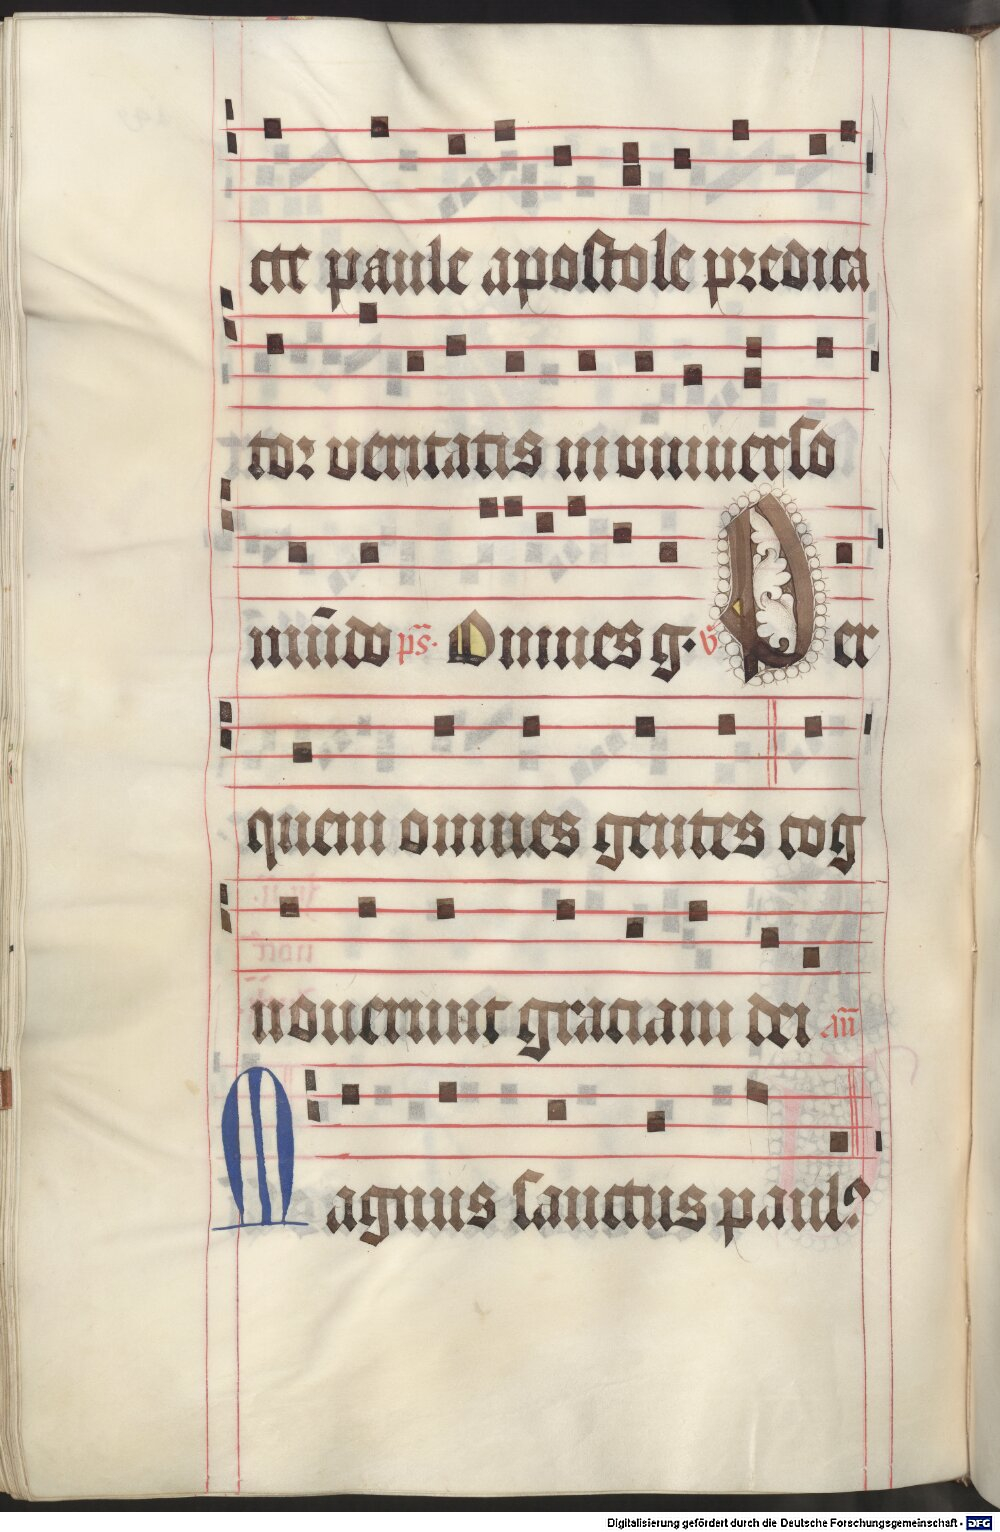 cte paule apostole predica
tor veritatis in vniuerso
mūdo ps̄. Omnes g. v̄ Per
quem omnes gentes cog
nouerunt graciam dei an̄
Magnus sanctus paulꝰ
Digitalisierung gefördert durch die Deutsche Forschungsgemeinschaft - DFG